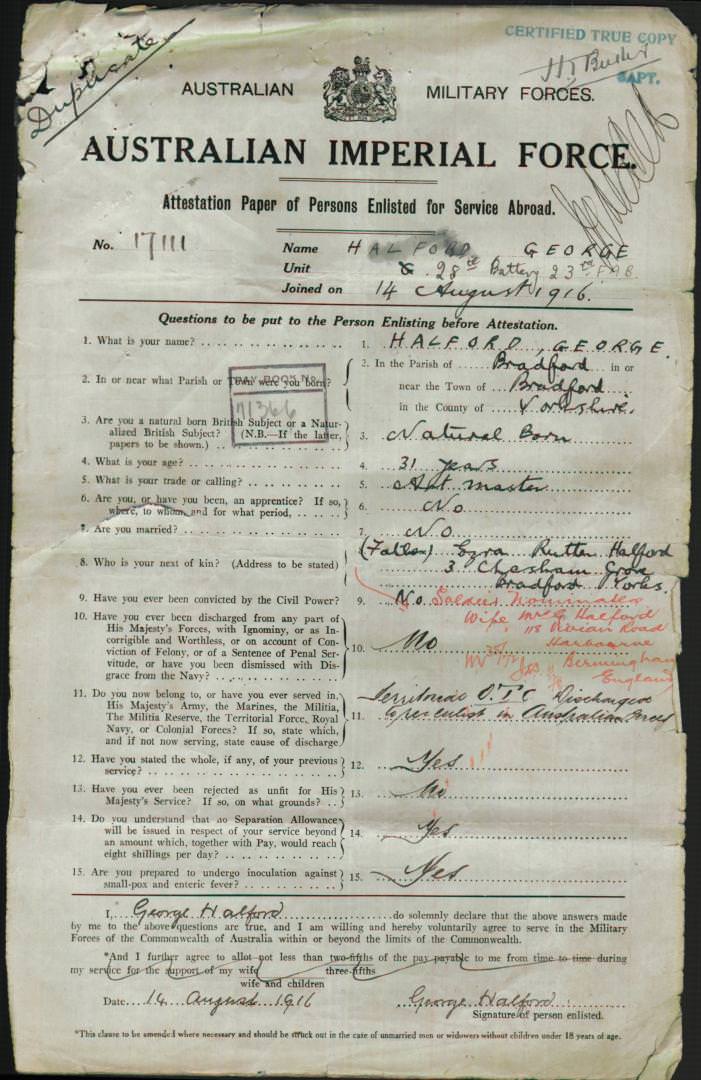 CERTIFIED TRUE COPY
CAPT.
Duplicate
AUSTRALIAN MILITARY FORCES.
AUSTRALIAN IMPERIAL FORCE.
Attestation Paper of Persons Enlisted for Service Abroad.
No. 17111
Name HALFORD GEORGE
Unit 28th Battery 23rd F.A.B.
Joined on 14 August 1916.
Questions to be put to the Person Enlisting before Attestation.
1. What is your name? 1. HALFORD, GEORGE.
2. In or near what Parish or Town were you born? 2. In the Parish of Bradford in or
near the Town of Bradford
in the County of Yorkshire.
PAY BOOK No.
71366
3. Are you a natural born British Subject or a Natur-
alized British Subject? (N.B.—If the latter,
papers to be shown.) 3. Natural Born
4. What is your age? 4. 31 years
5. What is your trade or calling? 5. Art master
6. Are you, or have you been, an apprentice? If so,
where, to whom, and for what period, 6. No
7. Are you married? 7. No.
8. Who is your next of kin? (Address to be stated) (Father) Ezra Rutten Halford
3. Chesham Grove
Bradford Yorks.
9. Have you ever been convicted by the Civil Power? 9. No.
Soldier nominates
Wife Mrs G Halford
118 Vivian Road
Harbourne
Birmingham
England
10. Have you ever been discharged from any part of
His Majesty's Forces, with Ignominy, or as In-
corrigible and Worthless, or on account of Con-
viction of Felony, or of a Sentence of Penal Ser-
vitude, or have you been dismissed with Dis-
grace from the Navy? 10. No
11. Do you now belong to, or have you ever served in,
His Majesty's Army, the Marines, the Militia,
The Militia Reserve, the Territorial Force, Royal
Navy, or Colonial Forces? If so, state which,
and if not now serving, state cause of discharge 11. Territorial O.T.C Discharged
to re-enlist in Australian Forces
12. Have you stated the whole, if any, of your previous
service? 12. Yes
13. Have you ever been rejected as unfit for His
Majesty's Service? If so, on what grounds? 13. No
14. Do you understand that no Separation Allowance
will be issued in respect of your service beyond
an amount which, together with Pay, would reach
eight shillings per day? 14. Yes
15. Are you prepared to undergo inoculation against
small-pox and enteric fever? 15. Yes
I, George Halford do solemnly declare that the above answers made
by me to the above questions are true, and I am willing and hereby voluntarily agree to serve in the Military
Forces of the Commonwealth of Australia within or beyond the limits of the Commonwealth.
*And I further agree to allot not less than two-fifths of the pay payable to me from time to time during
my service for the support of my wife three-fifths
wife and children
Date 14 August 1916 George Halford
Signature of person enlisted.
*This clause to be amended where necessary and should be struck out in the case of unmarried men or widowers without children under 18 years of age.